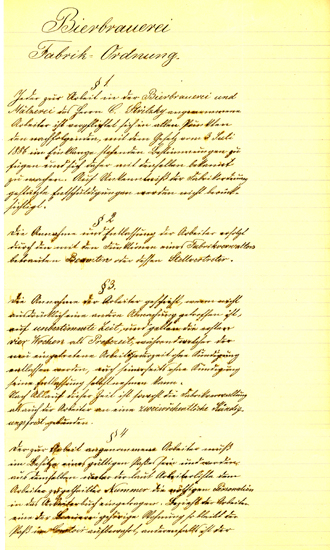 Bierbrauerei
Fabrik-Ordnung.
§ 1
Jeder zur Arbeit in der Bierbrauerei und
Mälzerei des Herrn C. angenommene
Arbeiter ist verpflichtet sich in allen Punkten
den nachfolgenden, auf dem Gesetz vom 3. Juli
im Einklange stehenden Bestimmungen zu
fügen und sich daher mit denselben bekannt
zu machen. Auf Unkenntniß der Fabrikordnung
gestützte Entschuldigungen werden nicht berück-
sichtigt.
§ 2
Die Annahme und Entlassung der Arbeiter erfolgt
durch den mit den Funktionen eines Fabrikverwalters
betrauten Beamten oder dessen Stellvertreter.
§ 3.
Die Annahme der Arbeiter geschieht, wenn nicht
ausdrücklich eine andere Abmachung getroffen ist,
auf unbestimmte Zeit, und gelten die ersten
vier Wochen als Probezeit, während welcher der
neu eingetretene Arbeiter jederzeit ohne Kündigung
entlassen werden, auch seinerseits ohne Kündigung
seine Entlassung selbst nehmen kann.
Nach Ablauf dieser Zeit ist sowohl die Fabrikverwaltung
als auch der Arbeiter an eine zweiwöchentliche Kündig-
ungsfrist gebunden.
§ 4
Der zur Arbeit angenommene Arbeiter muß
im Besitze eines gültigen Passes sein und werden
aus demselben unter der laut Arbeiterliste dem
Arbeiter zugetheilten Nummer die nöthigen
in das Arbeiterbuch eingetragen. Bezieht der Arbeiter
eine der gehörige Wohnung, so bleibt der
Paß im Comtoir aufbewahrt, anderenfalls ist der